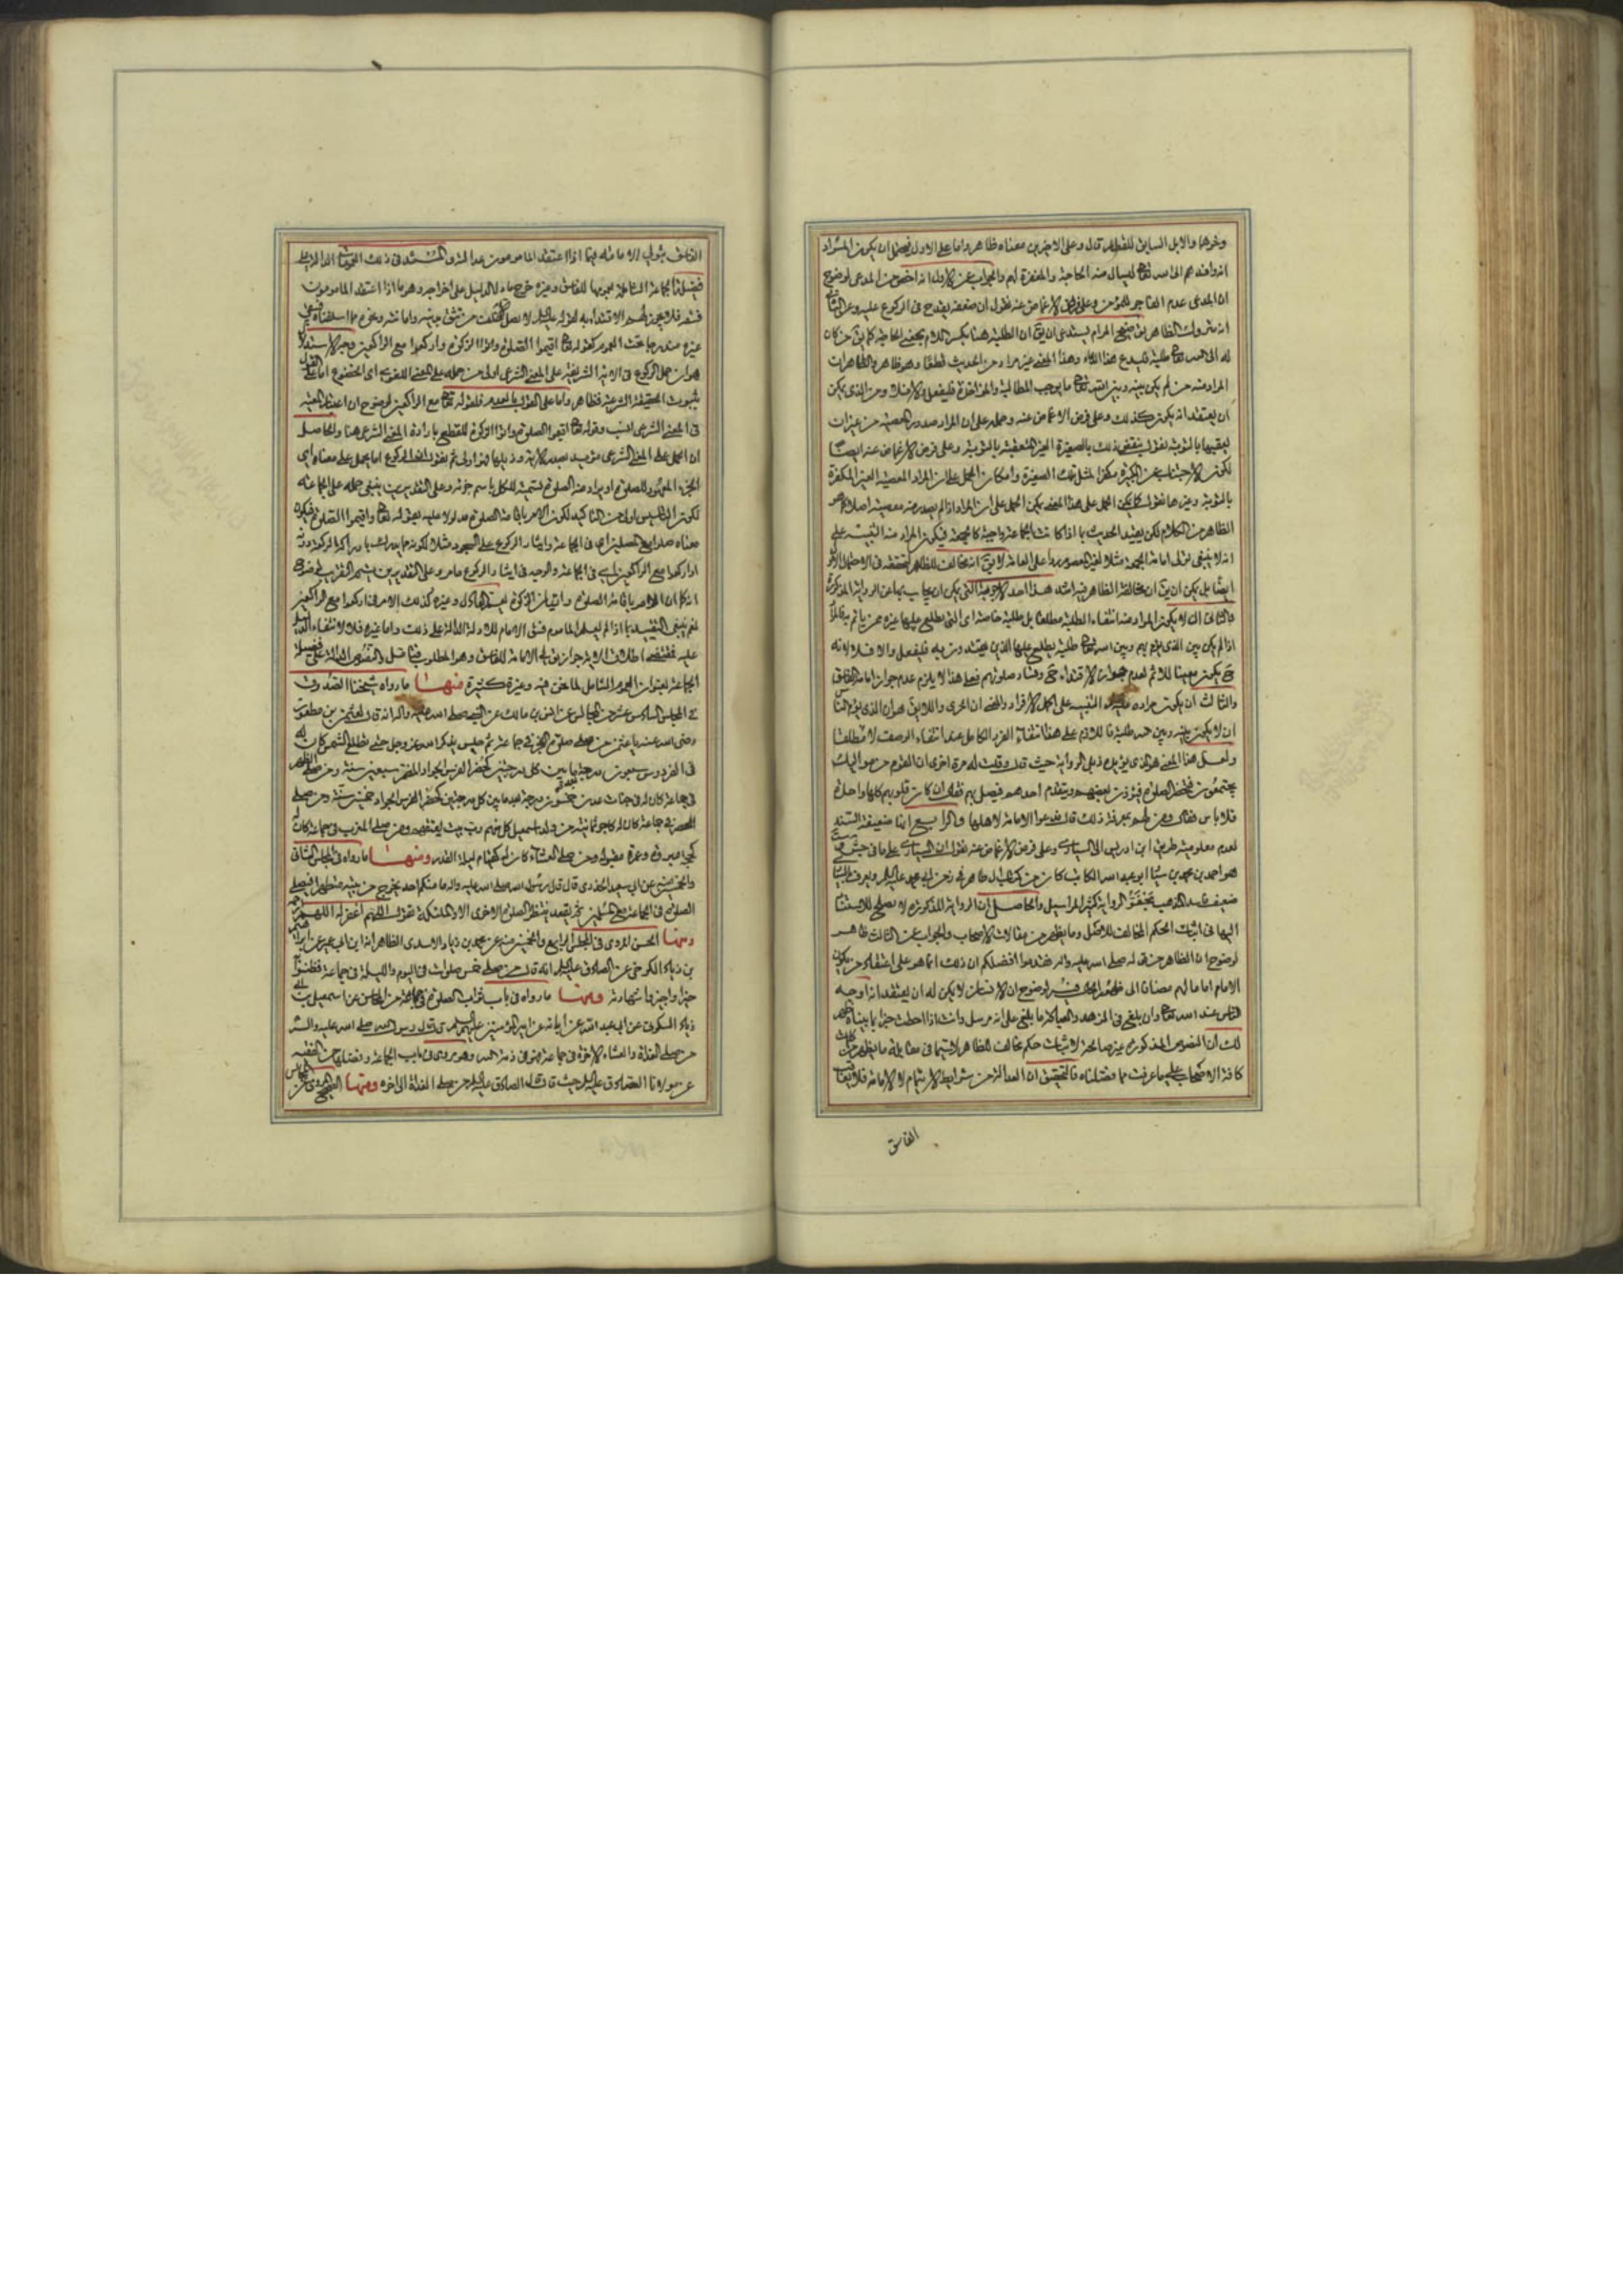 ونحوها والابل السابق للقطار قال وعلى الاخيرين معناه ظاهر واما على الاول فيحتمل ان يكون المراد
انه وافدهم الى الله تعالى ليسأل منه الحاجة والمغفرة لهم والجواب عن الاول انه اخص من المدعى لوضوح
ان المدعى عدم الفاجر للمؤمن وعلى فرض الاغماض عنه نقول ان ضعفه يقدح في الركوع عليه وعن الثاني
انه متروك الظاهر توضيح المرام يستدعى ان يقال ان الطلبة هنا بكسر اللام بمعنى الحاجة كما يقال من كان
له الى الله تعالى طلبة فليدع هذا الدعاء وهذا المعنى غير مراد من الحديث قطعا وهو ظاهر والظاهر ان
المراد منه من لم يكن بينه وبين الله تعالى ما يوجب المطالبة والمؤاخذة فليفعل والا فلا ومن الذي يمكن
ان يعتقد انه يكون كذلك وعلى فرض الاغماض عنه وحمله على ان المراد صدور المعصية من غير ان
يعقبها بالتوبة نقول ينتقض ذلك بالصغيرة الغير المتعقبة بالتوبة وعلى فرض الاغماض عنه ايضا
لكون الاجتناب عن الكبيرة مكفرا لمثل تلك الصغيرة وامكان الحمل على ان المراد المعصية الغير المكفرة
بالتوبة وغيرها نقول كما يمكن الحمل على هذا المعنى يمكن الحمل على ان المراد اذا لم يصدر منه معصية اصلا كما هو
الظاهر من الكلام لكن يقيد الحديث بما اذا كانت الجماعة واجبة كالجمعة فيكون المراد منه التنبيه على
انه لا ينبغي تولى امامة الجمعة مثلا لغير المعصوم ردا على العامة لا يقال انه مخالف للظاهر لتحققه في الاحتمال الاول
ايضا بل يمكن ان يقال ان مخالفة الظاهر فيه اشد هذا احد الاجوبة التي يمكن ان يجاب بها عن الرواية المذكورة
والثاني ان لا يكون المراد منه انتفاء الطلبة مطلقا بل طلبة خاصة اي التي يطلع عليها غيره ممن يأتم به فالمراد
اذا لم يكن بين الذي يؤم بهم وبين الله تعالى طلبة يطلع عليها الذين يقتدون به فليفعل والا فلا لانه
ح يكون معينا للاثم لعدم جواز الاقتداء ح وفساد صلوتهم فعلى هذا لا يلزم عدم جواز امامة الفاسق
والثالث ان يكون مراده التنبيه على اكمل الافراد والمعنى ان الحرى واللايق هو ان الذي يؤم الناس
ان لا يكون بينه وبين الله طلبة فاللازم على هذا انتفاء الفرد الكامل عند انتفاء الوصف لا مطلقا
ولعل هذا المعنى هو الذي يؤيده ذيل الرواية حيث قال وقلت له مرة اخرى ان القوم من مواليك
يجتمعون فتحضر الصلوة فيؤذن بعضهم ويتقدم احدهم فيصلى بهم فقال ان كان قلوبهم كلها واحدة
فلا بأس فقال ومن لهم بمعرفة ذلك قال فدعوا الامامة لاهلها والرابع انها ضعيفة السند
لعدم معلومية طريق ابن ادريس الى السيارى وعلى فرض الاغماض عنه نقول ان السيارى على ما في
هو احمد بن محمد بن سيار ابو عبد الله الكاتب كان من كتاب ال طاهر في زمن ابي محمد عليه السلام ويعرف بالسيارى
ضعيف فاسد المذهب مجفو الرواية كثير المراسيل والحاصل ان الرواية المذكورة لا تصلح للاستناد
اليها في اثبات الحكم المخالف للاصل وما يظهر من مقالات الاصحاب والجواب عن الثالث ظاهر
لوضوح ان الظاهر من قوله صلى الله عليه واله فقدموا افضلكم ان ذلك انما هو على اعتقاد من يكون
الامام اماما لهم مضافا الى لوضوح ان الانسان لا يمكن له ان يعتقد انه اوجه
الناس عند الله تعالى وان بلغ في الزهد والعبادة ما بلغ على انه مرسل وانت اذا احطت خبرا بما بيناه ظهر
لك ان النصوص المذكورة غير صالحة لاثبات حكم مخالف للظاهر لا سيما في مقابلة ما يظهر من كلمات
كافة الاصحاب على ما عرفت مما فصلناه فالتحقيق ان العدالة من شرايط الائتمام لا الامامة فلا يعاقب
الفاسق
الفاسق بتولى الامامة فيما اذا اعتقد المأمومون عدالته والمستند في ذلك العمومات الدالة على
فضيلة الجماعة الشاملة بعمومها للفاسق وغيره خرج ما دل الدليل على اخراجه وهو ما اذا اعتقد المأمومون
فسقه فلا يجوز لهم الاقتداء به لقوله عليه السلام لا تصل خلف من تثق بدينه وامانته ونحوه مما اسلفناه فبقى
غيره مندرجا تحت العموم كقوله تعالى اقيموا الصلوة واتوا الزكوة واركعوا مع الراكعين وجه الاستدلال
هو ان حمل الركوع في الاية الشريفة على المعنى الشرعى اولى من حمله على المعنى اللغوى اي الخضوع اما على القول
بثبوت الحقيقة الشرعية فظاهر واما على القول بالعدم فلقوله تعالى مع الراكعين لوضوح ان اعتبار المعية
في المعنى الشرعى انسب وقوله تعالى اقيموا الصلوة واتوا الزكوة للقطع بارادة المعنى الشرعى هنا والحاصل
ان الحمل على المعنى الشرعى مؤيد بصدر الاية وذيلها فهو اولى ثم نقول انه الركوع اما يحمل على معناه اي
الجزء المعهود للصلوة او يراد منه الصلوة تسمية للكل باسم جزئه وعلى التقديرين ينبغي حمله على الجماعة
لكون التاسيس اولى من التاكيد لكون الامر باقامة الصلوة مدلولا عليه بقوله تعالى واقيموا الصلوة فيكون
معناه صلوا مع المصلين اي في الجماعة وايثار الركوع على السجود مثلا لكونه
اركعوا مع الراكعين اي في الجماعة والوجه في ايثار الركوع ما مر وعلى التقديرين
انه كما ان الامر باقامة الصلوة وايتاء الزكوة يعم العادل وغيره كذلك الامر في اركعوا مع الراكعين
نعم ينبغي التقييد بما اذا لم يعلم المأموم فسق الامام للادلة الدالة على ذلك واما غيره فلا لانتفاء الدليل
عليه فمقتضى اطلاق الاية جواز تولى الامامة للفاسق وهو المطلوب فتامل والنصوص الدالة على فضيلة
الجماعة بعنوان العموم الشامل لما نحن فيه وغيره كثيرة منها ما رواه شيخنا الصدوق
في المجلس السادس عشر من المجالس عن انس بن مالك عن النبي صلى الله عليه واله انه قال لعثمان بن مظعون
رضى الله عنه يا عثمان من صلى صلوة الفجر في جماعة ثم جلس يذكر الله عز وجل حتى تطلع الشمس كان له
في الفردوس سبعون درجة ما بين كل درجتين كحضر الفرس الجواد المضمر سبعين سنة ومن صلى الظهر
في جماعة كان له في جنات عدن خمسون درجة بعد ما بين كل درجتين كحضر الفرس الجواد خمسين سنة ومن صلى
العصر في جماعة كان له كاجر ثمانية من ولد اسمعيل كل منهم رب بيت يعتقهم ومن صلى المغرب في جماعة كان له
كحجة مبرورة وعمرة مقبولة ومن صلى العشاء كان له كقيام ليلة القدر ومنها ما رواه في المجلس الثاني
والخمسين عن ابي سعيد الخدرى قال قال رسول الله صلى الله عليه واله ما منكم احد يخرج من بيته متطهرا فيصلى
الصلوة في الجماعة مع المسلمين ثم يقعد ينتظر الصلوة الاخرى الا والملئكة تقول اللهم اغفر له اللهم ارحمه
ومنها الحسن المروى في المجلس الرابع والخمسين منه عن محمد بن زياد الازدى الظاهر انه ابن ابي عمير عن ابراهيم
بن زياد الكرخى عن الصادق عليه السلام انه قال من صلى خمس صلوات في اليوم والليلة في جماعة فظنوا به
خيرا واجيزوا شهادته ومنها ما رواه في باب ثواب الصلوة في جماعة من المحاسن عن اسمعيل بن ابي
زياد السكونى عن ابي عبد الله عن ابائه عن امير المؤمنين عليهم السلام قال قال رسول الله صلى الله عليه واله
من صلى الغداة والعشاء الاخرة في جماعة فهو في ذمة الله وهو مروى في باب الجماعة وفضلها من الفقيه
عن مولانا الصادق عليه السلام حيث قال قال الصادق عليه السلام من صلى الغداة الى اخره ومنها الصحيح المروى